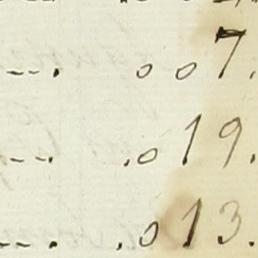 --. 007.
--. .019.
--. .013.